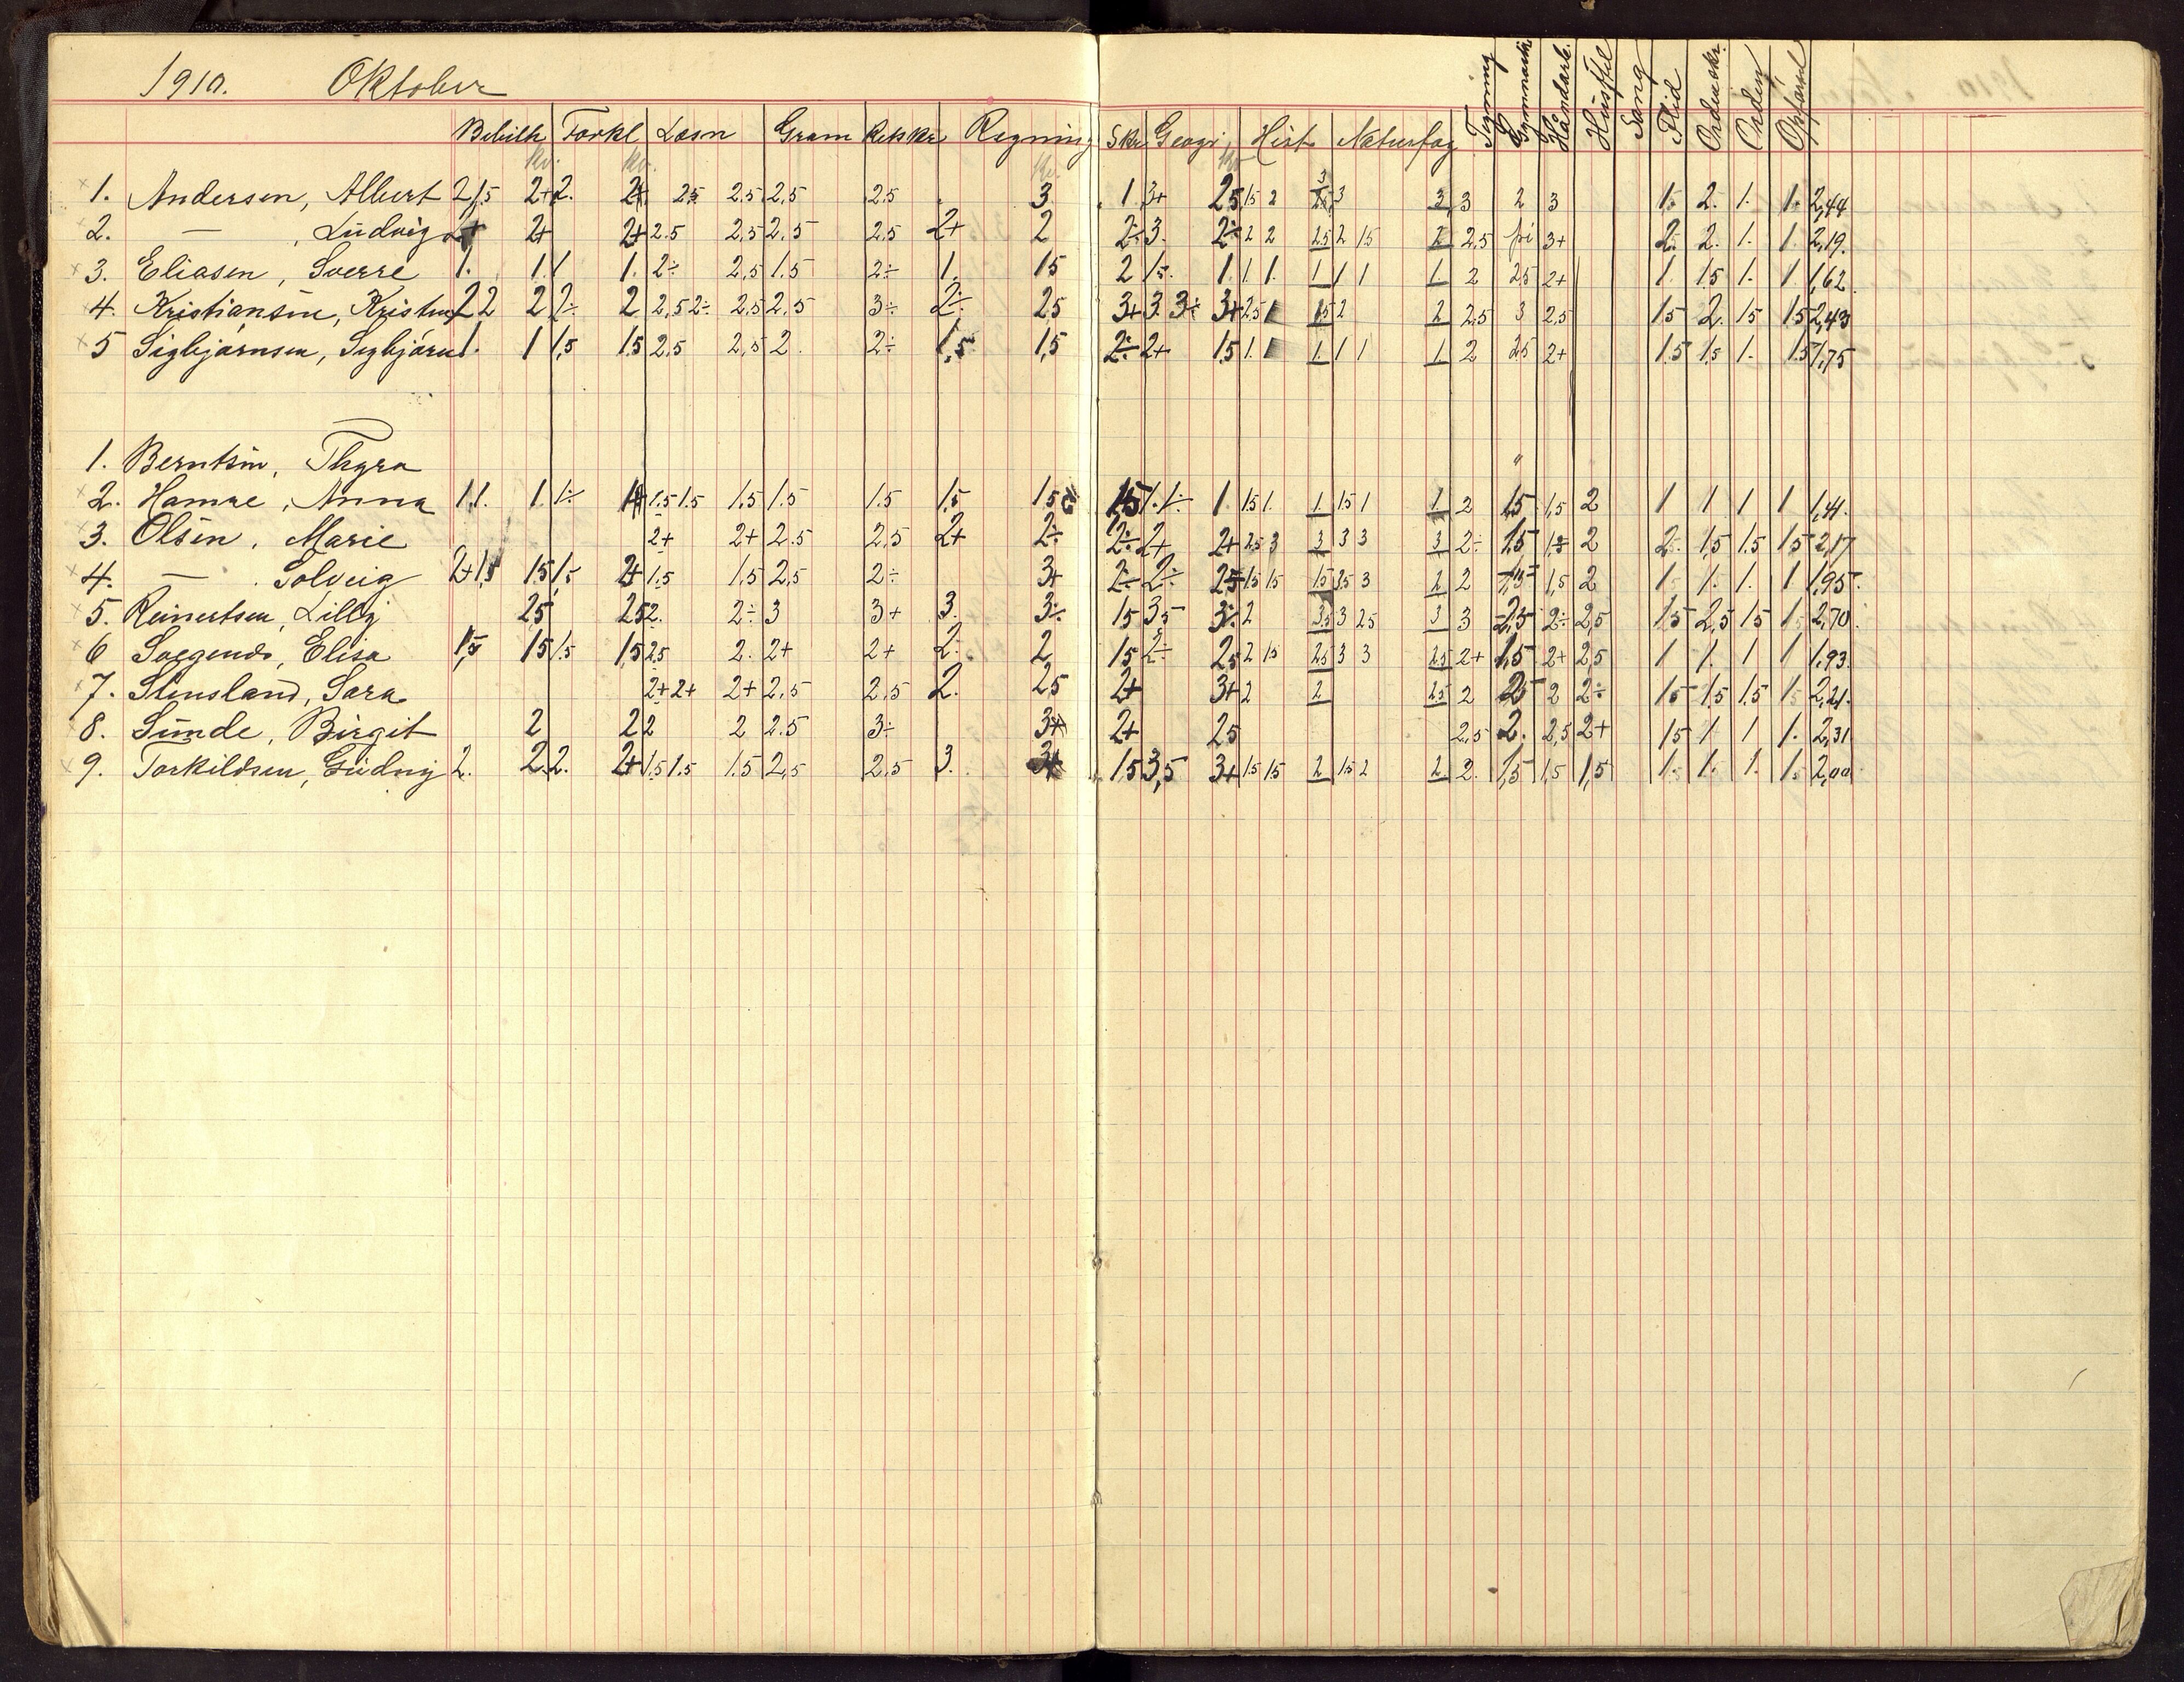 1910. Oktober
Bibelh Forkl Læsn Gram Retskr Regning Skr Geogr. Hist Naturfag Tegning Gymnastik Håndarb. Husstel Sang Flid Orden skr. Orden Opførsel
kv. kv. kv. kv
1. Andersen, Albert 2 1,5 2+ 2. 2+ 25 2.5 2,5 2.5 3 1 3+ 25 15 2 3 3 3 3 2 3 1. 2. 1. 1. 2,44
2. — , Ludvig 2+ 2+ 2+ 2.5 2,5 2.5 2.5 2+ 2 2÷ 3. 2÷ 2 2 2.5 2 1.5 2 2,5 fri 3+ 2. 2. 1. 1. 2,19.
3. Eliasen, Sverre 1. 1. 1 1. 2÷ 2,5 1.5 2÷ 1. 15 2 1.5. 1. 1. 1. 1 1 1 1 2 25 2+ 1. 15 1. 1 1,62.
4. Kristiansen, Kristen 2 2 2 2÷ 2 2,5 2÷ 2.5 2,5 3÷ 2÷ 25 3+ 3. 3÷ 3+ 2.5 15 2 2 2,5 3 2,5 15 2. 15 15 2,43
5 Sigbjørnsen, Sigbjørn 1. 1 1,5 1.5 2,5 2,5 2. 2÷ 1,5 1,5 2÷ 2+ 15 1. 1. 1 1 1. 2 25 2+ 1.5 1,5 1. 1.5 1,75
1. Berntsen, Thyra "
2. Hamre, Anna 1. 1. 1. 1÷ 1.5 1.5 1.5 1.5 1.5 1.5 1.5 15 1. 1÷ 1 15 1. 1 15 1 1 2 15 1,5 2 1 1 1 1 1,41.
3. Olsen, Marie 2+ 2+ 2.5 2,5 2+ 2÷ 2÷ 2+ 2+ 2,5 3 3 3 3 3 2÷ 15 2 2. 1,5 1.5 1.5 2,17
4. — . Solveig 2+ 1,5 15 1,5 2+ 1.5 1.5 2,5 2÷ 3+ 2÷ 2÷ 25 15 15 15 25 3 2 2 1,5 2 1. 1. 1. 1 1,95.
5. Reinertsen, Lilly 25 25 2. 2÷ 3 3+ 3. 3÷ 15 35 3÷ 2 3 25 3 3 2,5 2÷ 2,5 15 2,5 15 1. 2,70.
6 Soegends, Elisa 1,5 15 1.5 15 25 2. 2+ 2+ 2. 2 15 2÷ 25 2 15 25 3 3 25 2+ 1,5 2+ 2,5 1 1. 1 1 1,93.
7. Stensland, Sara 2+ 2+ 2+ 2,5 2,5 2. 25 2+ 3+ 2 2 2 25 2 2÷ 15 1,5 1.5 1. 2,21.
8. Sunde, Birgit 2 2 2 2 2.5 3÷ 3+ 2+ 25 2,5 2. 2,5 2+ 15 1 1 1. 2,31
9. Torkildsen, Gudny 2. 2. 2. 2+ 1.5 1.5 1.5 2,5 2,5 3. 1.5 3,5 3+ 15 15 2 15 2 2 2. 1,5 1,5 1,5 1. 1. 1. 1. 2,00